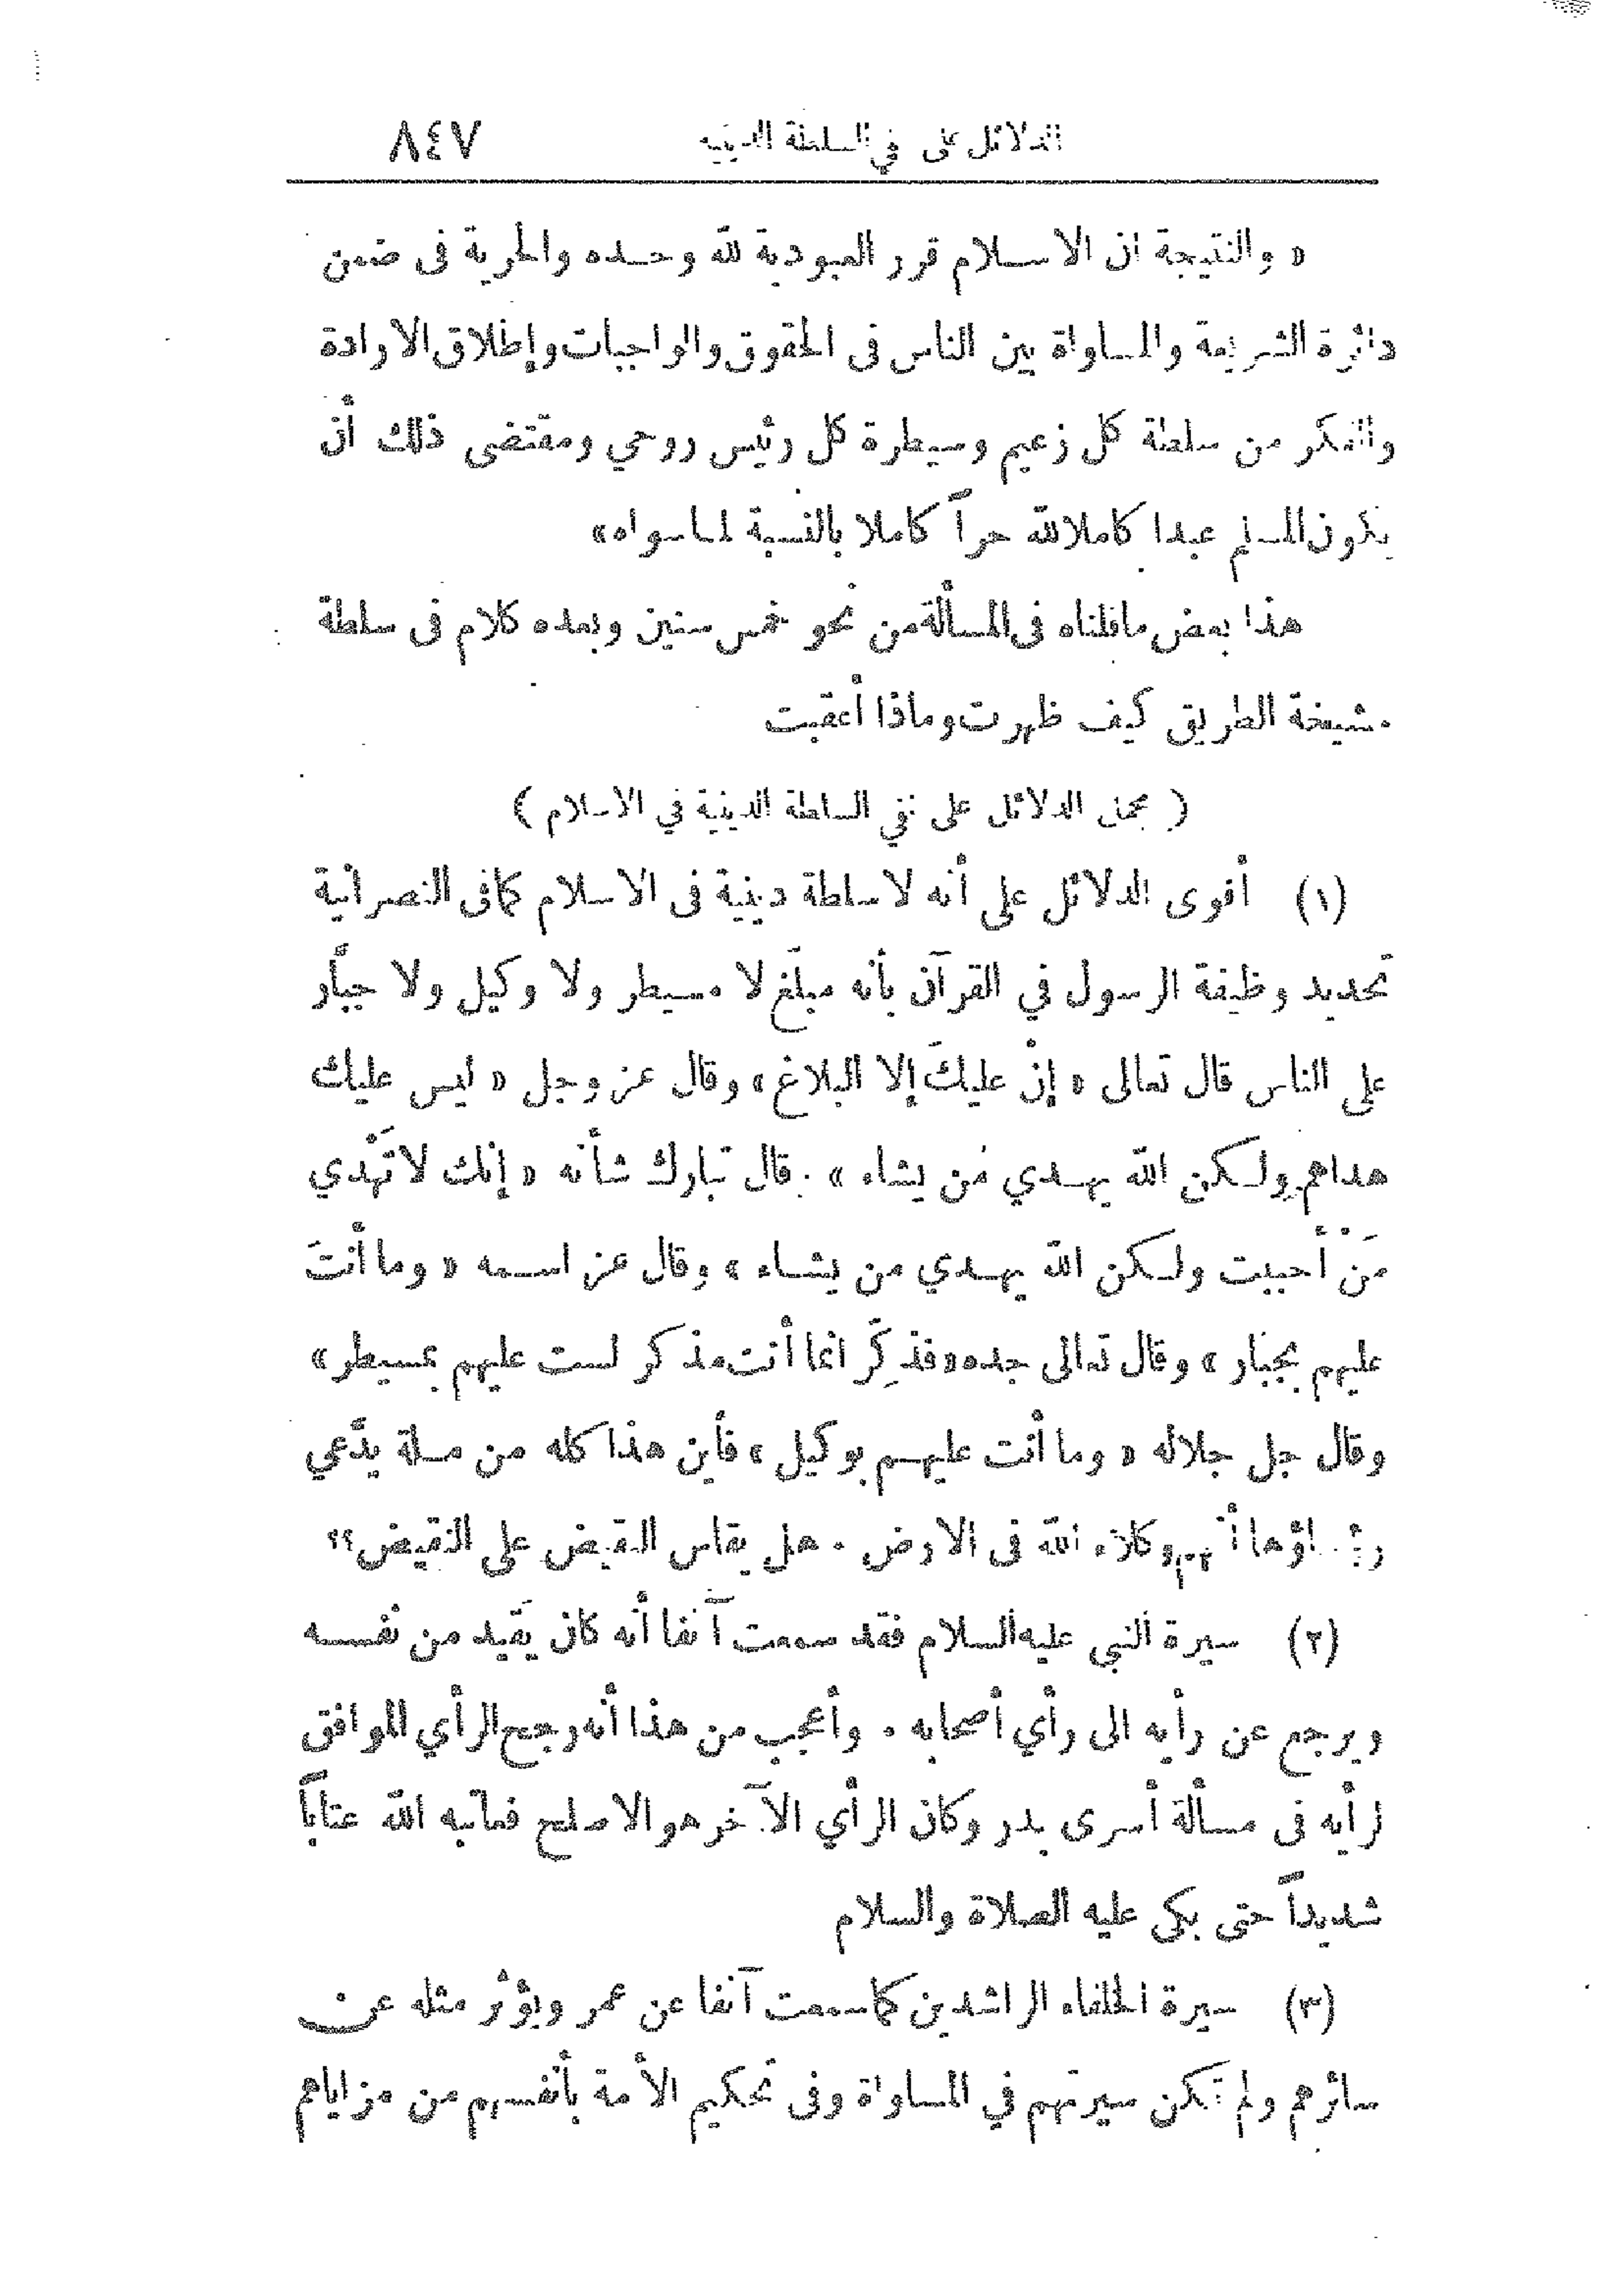 الدلائل على نفي السلطة الدينية ٨٤٧
« والنتيجة ان الاسلام قرر العبودية لله وحده والحرية فى ضمن
دائرة الشريعة والمساواة بين الناس فى الحقوق والواجبات وإطلاق الارادة
والفكر من سلطة كل زعيم وسيطرة كل رئيس روحي ومقتضى ذلك أن
يكون المسلم عبدا كاملا لله حراً كاملا بالنسبة لما سواه»
هذا بعض ما قلناه فى المسألة من نحو خمس سنين وبعده كلام فى سلطة
مشيخة الطريق كيف ظهرت وماذا أعقبت
( مجمل الدلائل على نفي السلطة الدينية في الاسلام )
(١) أقوى الدلائل على أنه لا سلطة دينية فى الاسلام كما فى النصرانية
تحديد وظيفة الرسول في القرآن بأنه مبلّغ لا مسيطر ولا وكيل ولا جبّار
على الناس قال تعالى « إنْ عليكَ إلا البلاغ » وقال عز وجل « ليس عليك
هداهم ولكن الله يهدي مَن يشاء » . قال تبارك شأنه « إنك لا تَهْدي
مَنْ أحببت ولكن الله يهدي من يشاء » وقال عز اسمه « وما أنتَ
عليهم بجبّار » وقال تعالى جده « فذكِّر انما أنت مذكر لست عليهم بمسيطر »
وقال جل جلاله « وما أنت عليهم بوكيل » فأين هذا كله من ملة يدَّعي
رؤساؤها أنهم وكلاء الله فى الارض . هل يقاس النقيض على النقيض؟؟
(٢) سيرة النبي عليه السلام فقد سمعت آنفا أنه كان يَقيد من نفسه
ويرجع عن رأيه الى رأي أصحابه . وأعجب من هذا أنه رجح الرأي الموافق
لرأيه فى مسألة أسرى بدر وكان الرأي الآخر هو الاصلح فعاتبه الله عتاباً
شديداً حتى بكى عليه الصلاة والسلام
(٣) سيرة الخلفاء الراشدين كما سمعت آنفا عن عمر ويؤثر مثله عن
سائرهم ولم تكن سيرتهم في المساواة وفى تحكيم الأمة بأنفسهم من مزاياهم